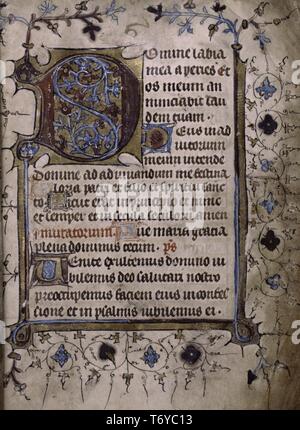 Domine labia
mea aperies Et
os meum an
nunciabit lau
dem tuam.
Deus in ad
iutorium
meum intende
Domine ad adiuvandum me festina
Gloria patri et filio et spiritui sanc
to Sicut erat in principio et nunc
et semper et in secula seculorum amen
Ave maria gracia
plena dominus tecum. ps
Venite exultemus domino iu
bilemus deo salutari nostro
preoccupemus faciem eius in confes
sione et in psalmis iubilemus ei.
alamy